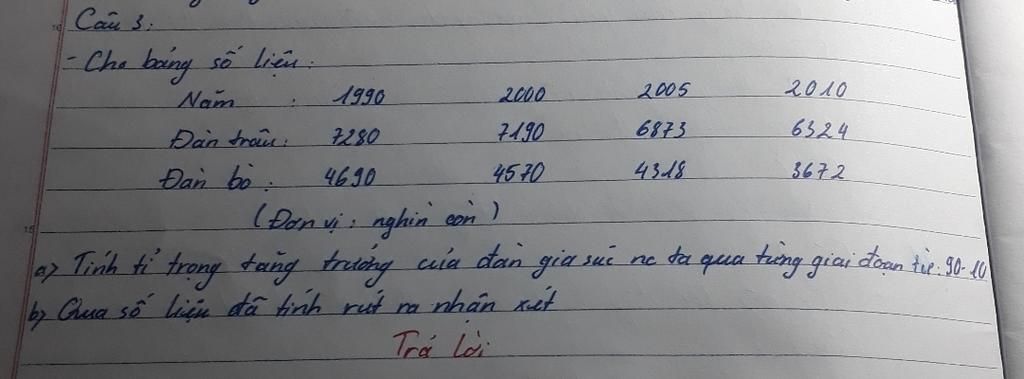 Câu 3:
- Cho bảng số liệu:
Năm : 1990 2000 2005 2010
Đàn trâu: 7280 7190 6873 6324
Đàn bò: 4690 4570 4318 3672
(Đơn vị: nghìn con)
a) Tính tỉ trọng tăng trưởng của đàn gia súc nc ta qua từng giai đoạn từ: 90-10
b) Qua số liệu đã tính rút ra nhận xét
Trả lời